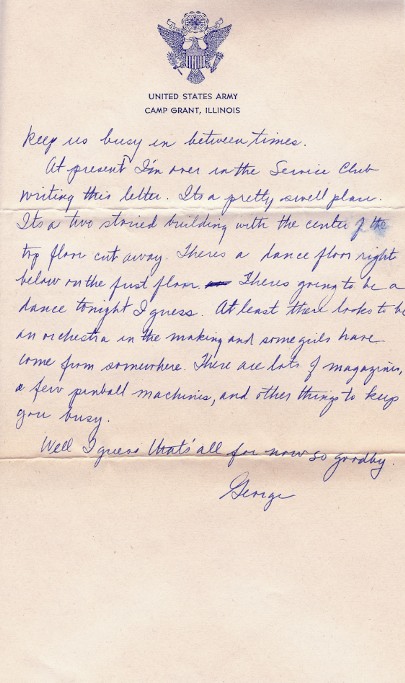 UNITED STATES ARMY
CAMP GRANT, ILLINOIS
keep us busy in between times.
At present I'm over in the Service Club
writing this letter. Its a pretty swell place.
Its a two storied building with the center of the
top floor cut away. Theres a dance floor right
below on the first floor. Theres going to be a
dance tonight I guess. At least there looks to be
an orchestra in the making and some girls have
come from somewhere. There are lots of magazines,
a few pinball machines, and other things to keep
you busy.
Well I guess that's all for now so goodby.
George